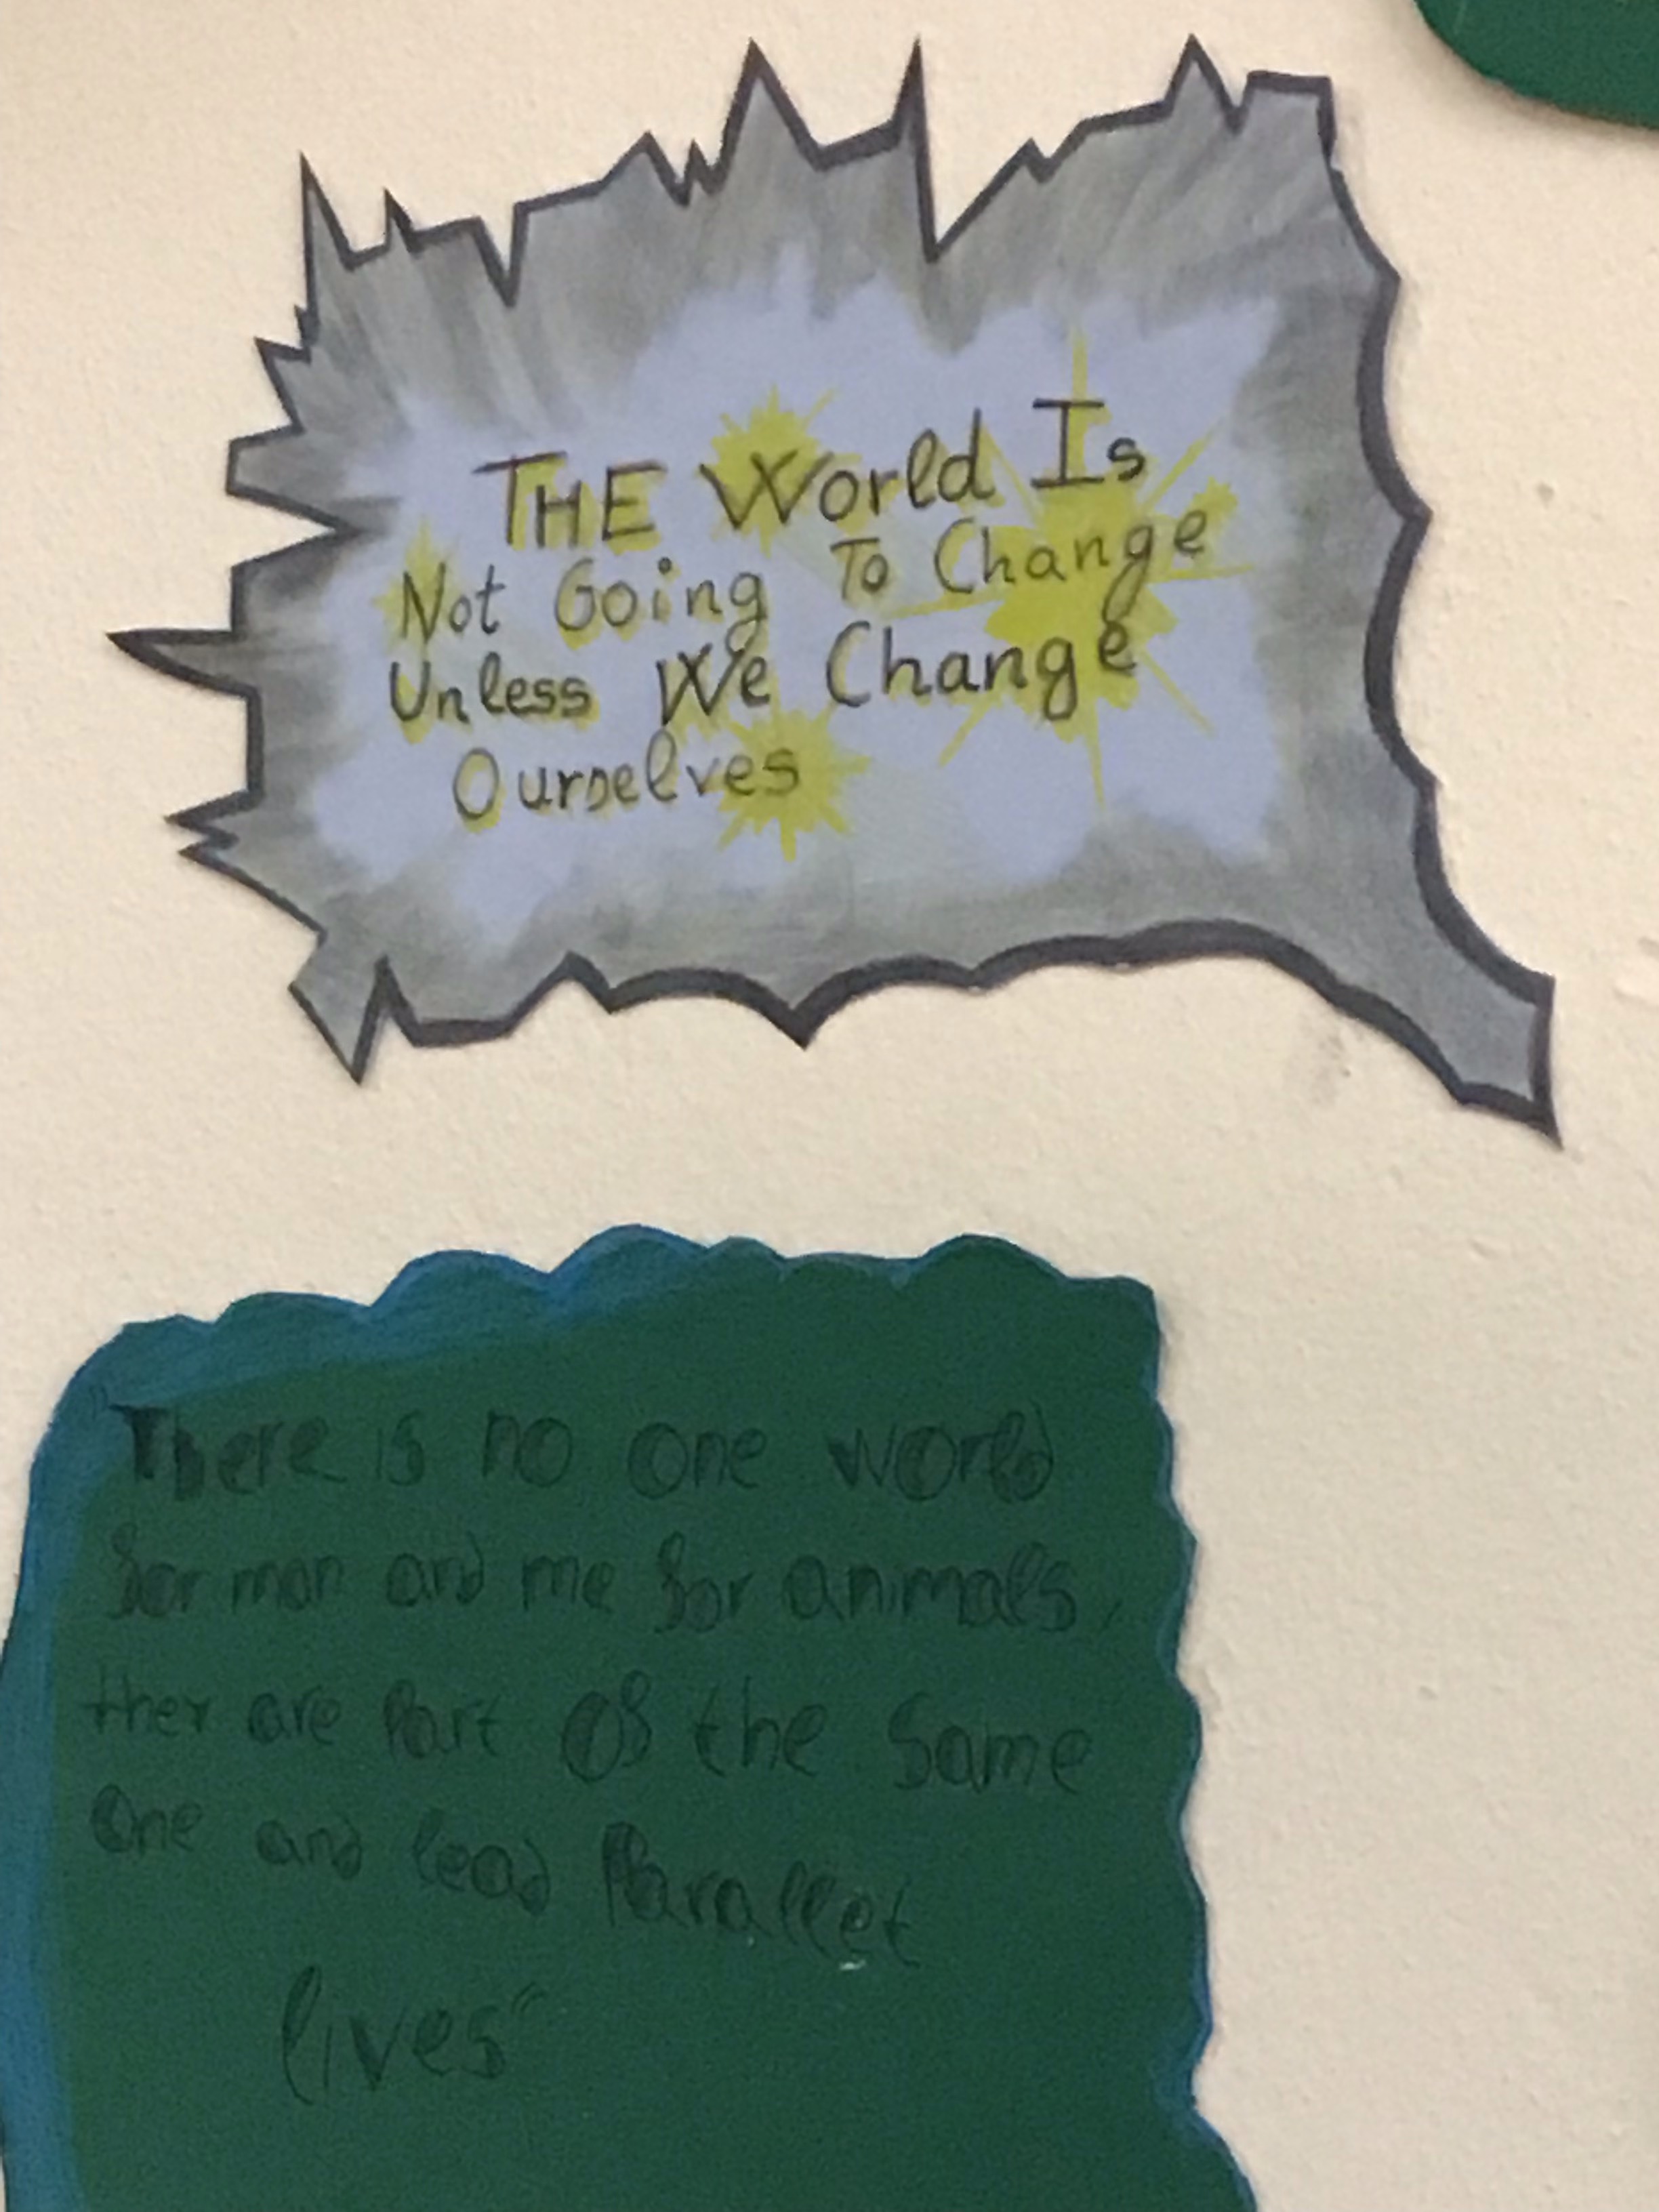 THE World Is
Not Going To Change
Unless We Change
Ourselves
"There is no one world
for man and me for animals,
they are Part of the Same
One and lead Parallet
lives"